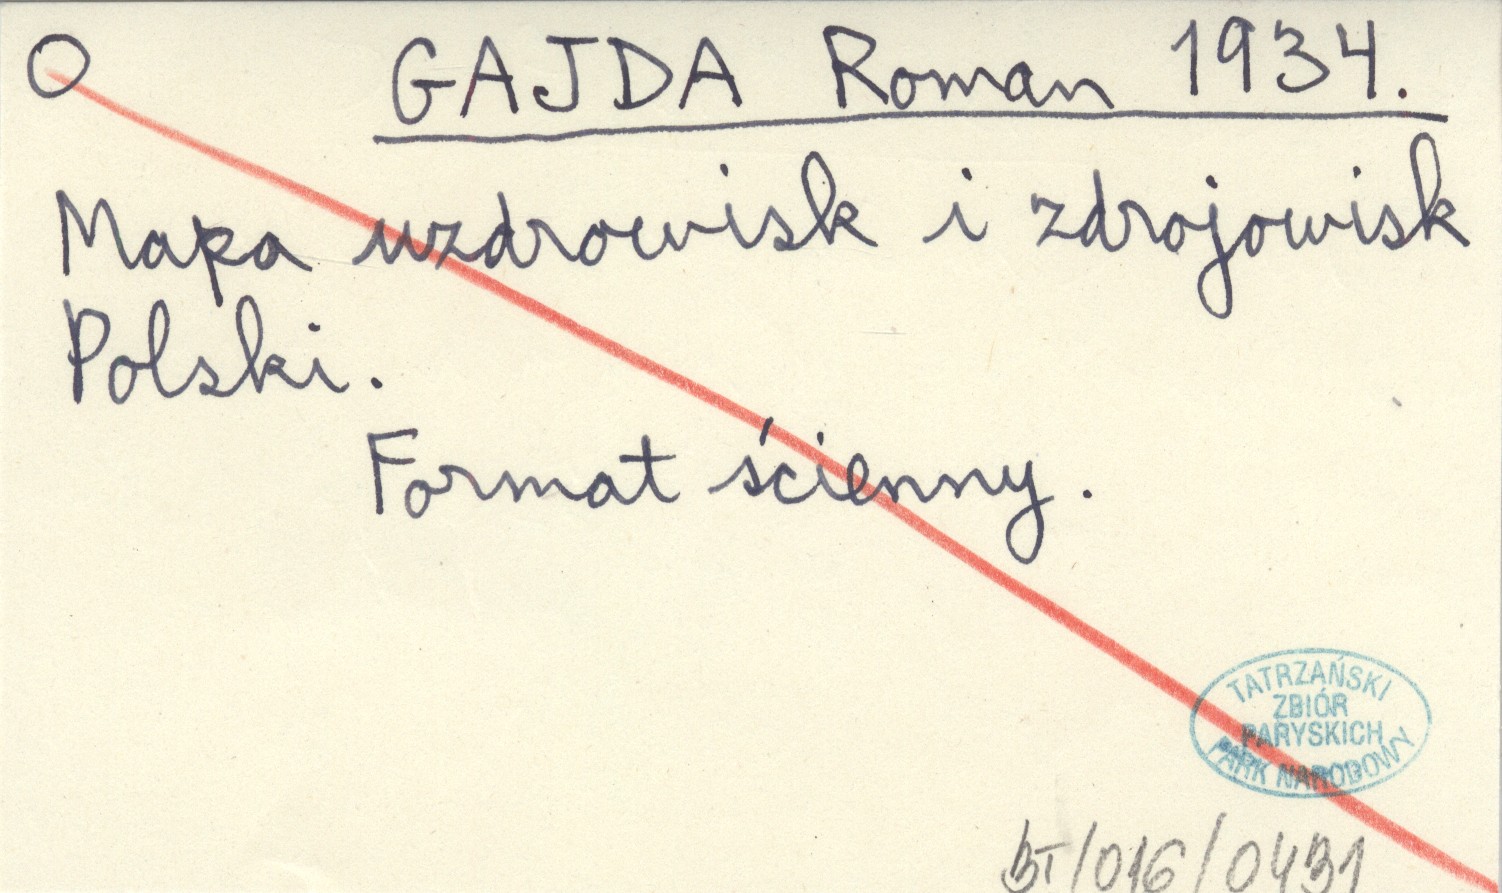 O GAJDA Roman 1934.
Mapa uzdrowisk i zdrojowisk
Polski.
Format ścienny.
TATRZAŃSKI
ZBIÓR
PARYSKICH
PARK NARODOWY
BT/016/0431